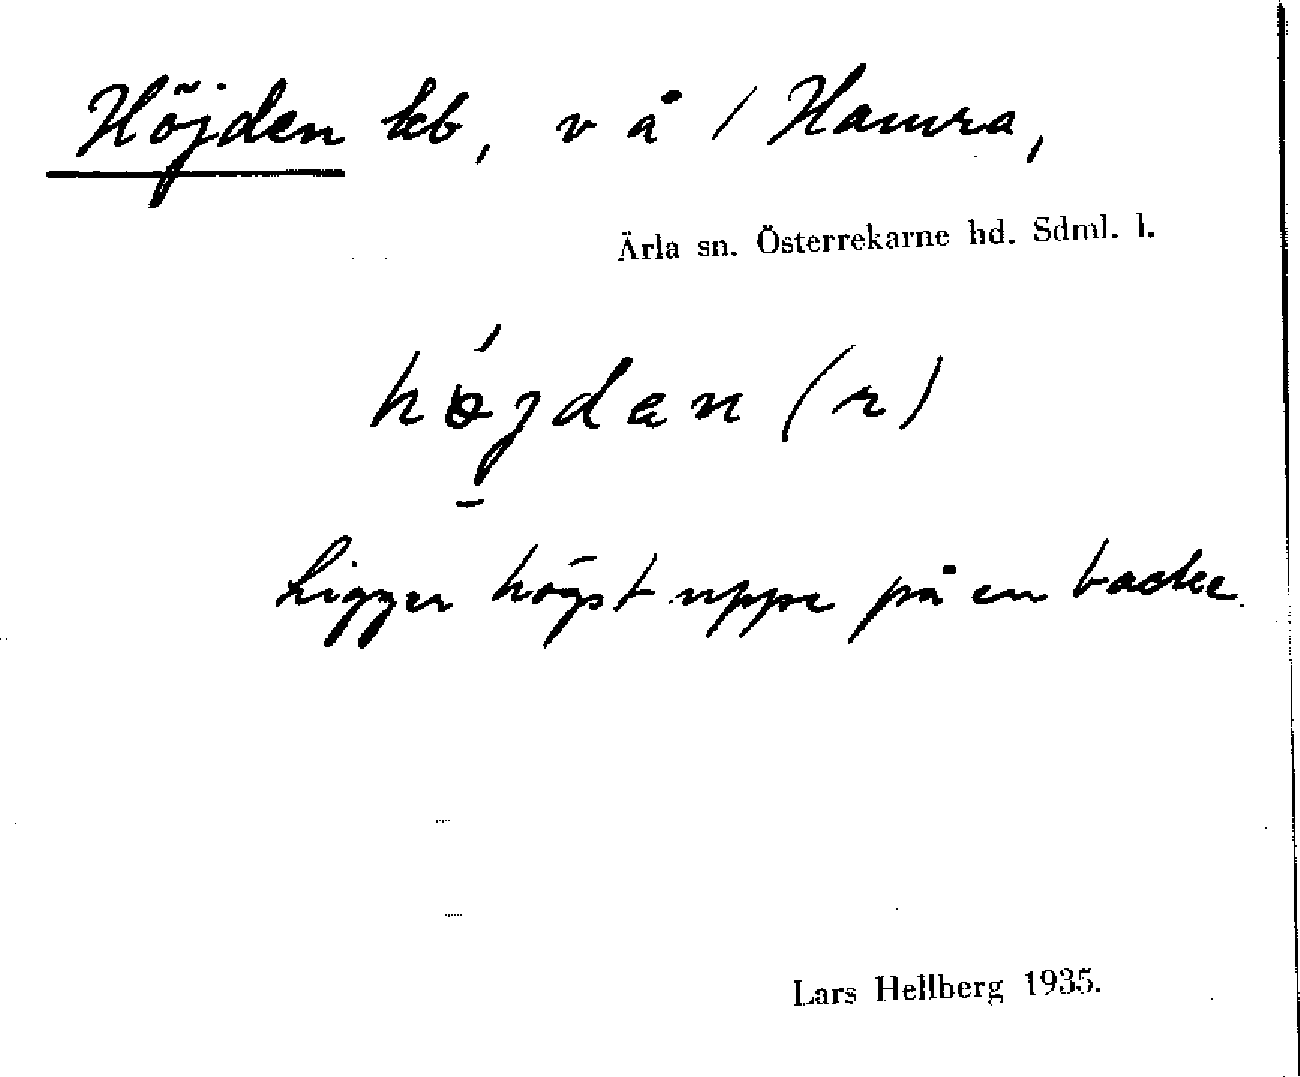 Höjden kb, v å / Hamra,
Ärla sn. Österrekarne hd. Sdml. l.
hö́jdan (r)
Ligger högst uppe på en backe.
Lars Hellberg 1935.